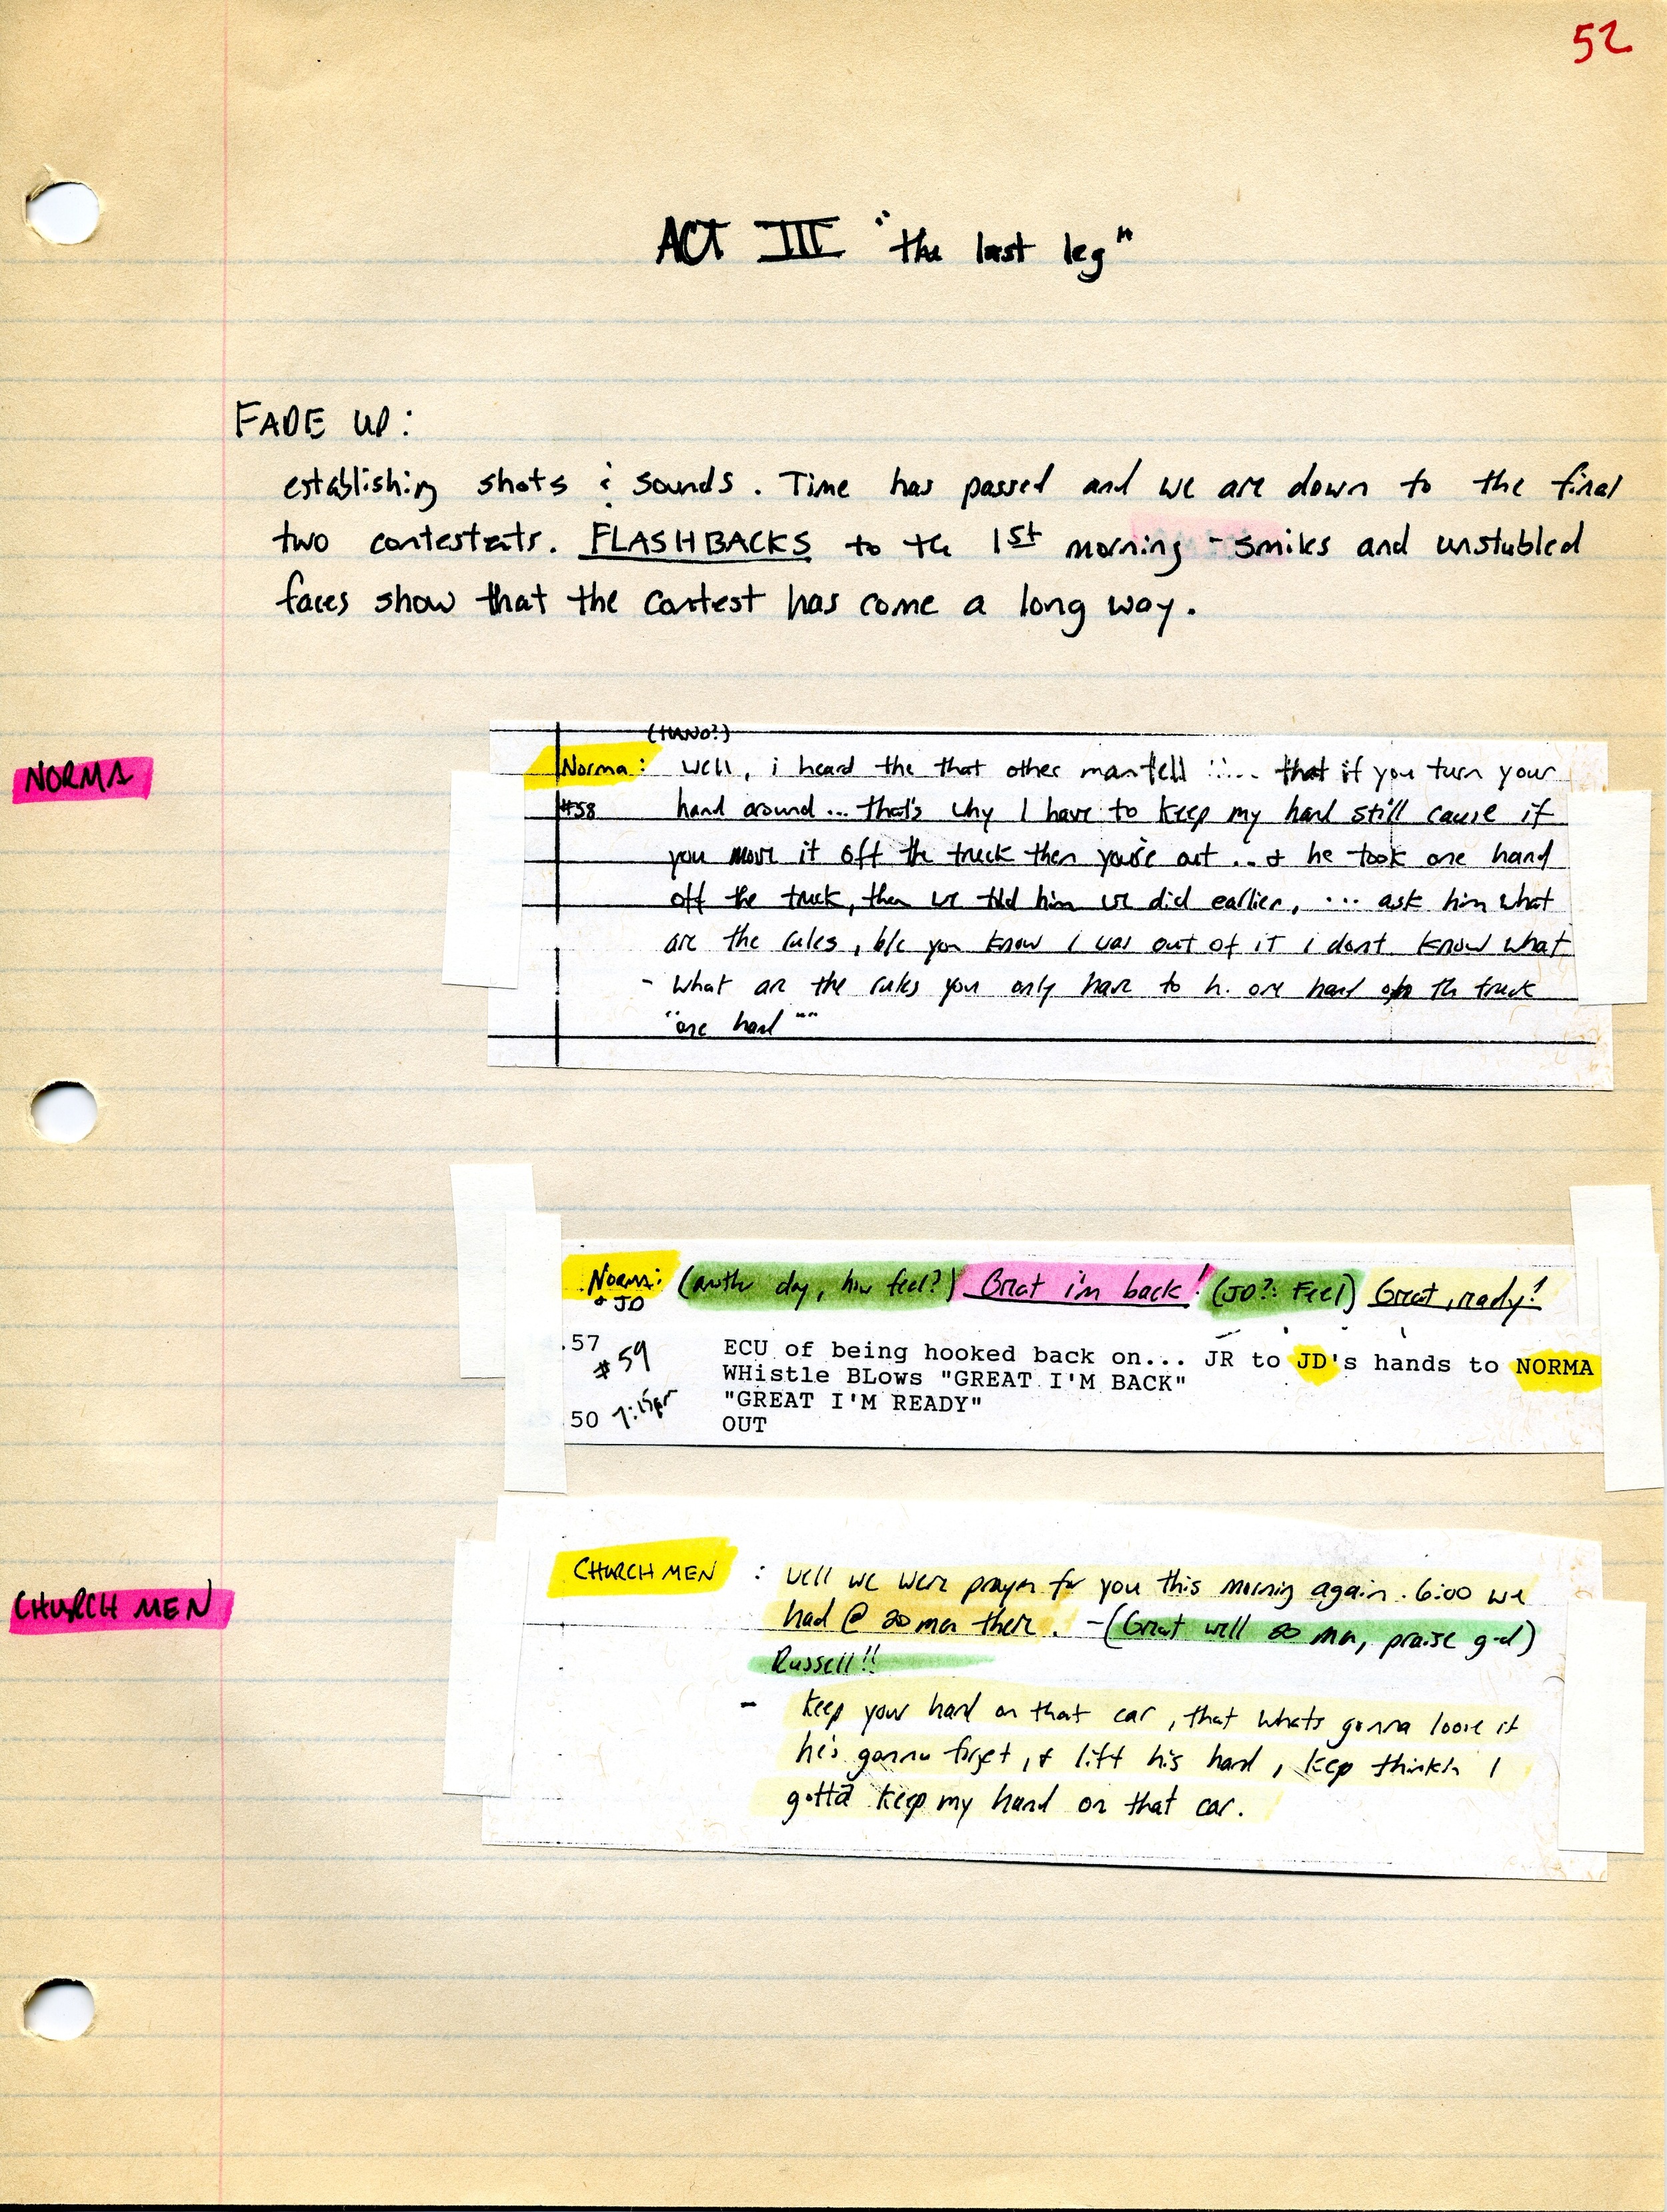 52
ACT III "the last leg"
FADE UP:
establishing shots & sounds. Time has passed and we are down to the final
two contestants. FLASHBACKS to the 1st morning - smiles and unstubled
faces show that the contest has come a long way.
NORMA
(HAND?)
Norma: well, i heard the that other man tell ..... that if you turn your
#58 hand around... that's why I have to keep my hand still cause if
you move it off the truck then you're out ... & he took one hand
off the truck, then we told him we did earlier, ... ask him what
are the rules, b/c you know i was out of it i dont know what
- what are the rules you only have to h. one hand on th truck
"one hand""
Norma: (anothr day, how feel?) Great i'm back! (JD?: Feel) Great, ready!
& JD
.57 ECU of being hooked back on... JR to JD's hands to NORMA
#59 WHistle BLows "GREAT I'M BACK"
"GREAT I'M READY"
50 7:15pm OUT
CHURCH MEN
CHURCH MEN : well we were prayen for you this morning again. 6:00 we
had @ 20 men there. - (Great well 20 men, praise g-d)
Russell!!
- keep your hand on that car, that whats gonna loose it
he's gonna forget, & lift his hand, keep thinkin I
gotta keep my hand on that car.